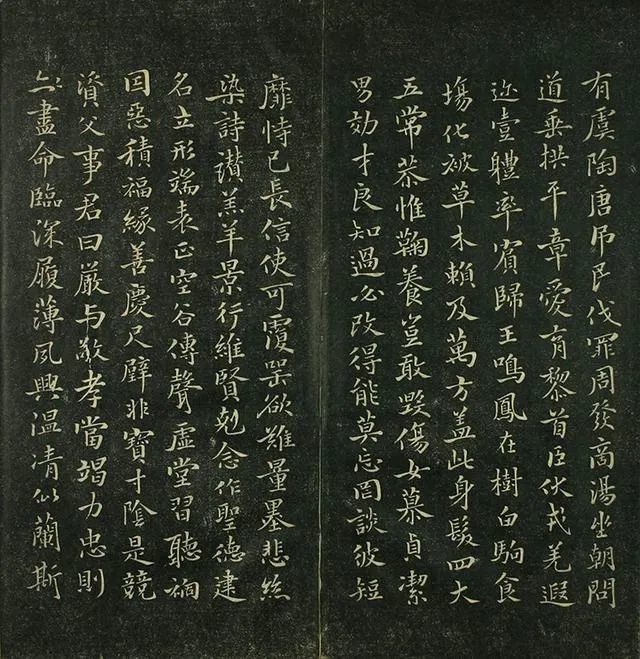 有虞陶唐弔民伐罪周發商湯坐朝問
道垂拱平章愛育黎首臣伏戎羌遐
迩壹軆率賓歸王鳴鳳在樹白駒食
場化被草木賴及萬方盖此身髮四大
五常恭惟鞠養豈敢毀傷女慕貞潔
男効才良知過必改得能莫忘罔談彼短
靡恃己長信使可覆器欲難量墨悲絲
染詩讃羔羊景行維賢剋念作聖德建
名立形端表正空谷傳聲虛堂習聽禍
因惡積福緣善慶尺璧非寶寸陰是競
資父事君曰嚴与敬孝當竭力忠則
盡命臨深履薄夙興温凊似蘭斯